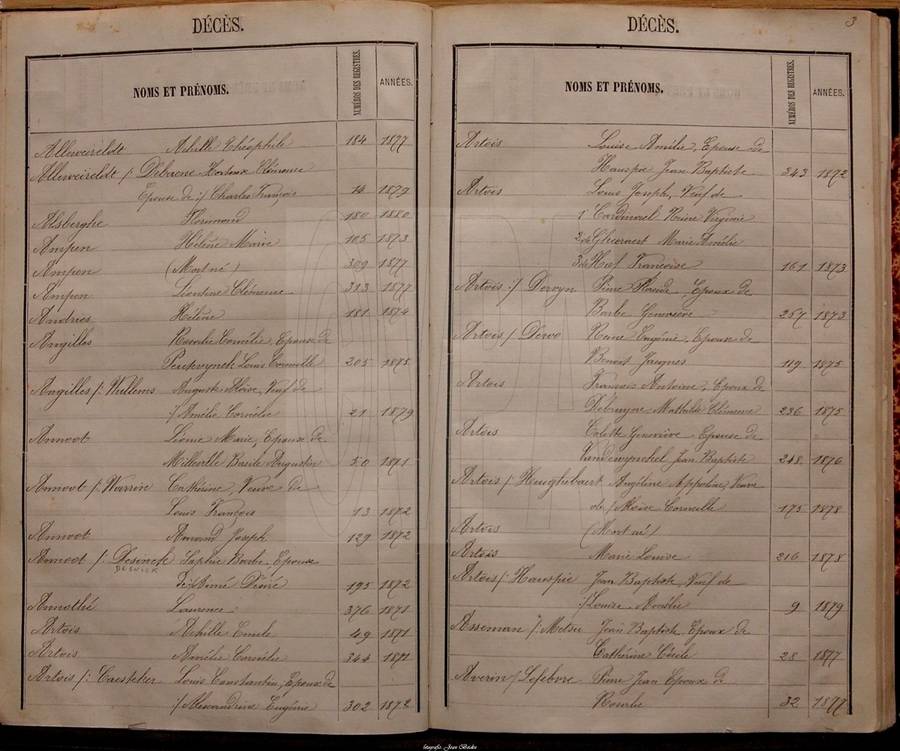 DÉCÈS.
NOMS ET PRÉNOMS. NUMÉROS DES REGISTRES. ANNÉES.
Alleweireldt Achille Théophile 184 1877
Alleweireldt /: Debaene Hortense Clémence
Epouse de :/ Charles François 14 1879
Alsberghe Florimond 180 1880
Ampen Hélène Marie 105 1873
Ampen (Mort né) 309 1877
Ampen Léontine Clémence 313 1877
Andries Hélène 181 1874
Angilles Rosalie Cornélie, Epouse de
Louis Corneille 205 1875
Angilles /: Willems Auguste Moïse, Veuf de
:/ Amélie Cornélie 21 1879
Annoot Léonie Marie, Epouse de
Milleville Basile Augustin 50 1871
Annoot /: Warrin Cathérine, Veuve de
Louis François 13 1872
Annoot Amand Joseph 129 1872
Annoot /: Desinck Sophie Barbe, Epouse
DESNICK
de :/ Aimé Désiré 195 1872
Annothé Laurence 376 1871
Artois Achille Emile 49 1871
Artois Amélie Cornélie 344 1871
Artois /: Caesteker Louis Constantin, Epoux de
:/ Alexandrine Eugénie 302 1872
DÉCÈS. 3
NOMS ET PRÉNOMS. NUMÉROS DES REGISTRES. ANNÉES.
Artois Louise Amélie, Epouse de
Hauspie Jean Baptiste 343 1872
Artois Louis Joseph, Veuf de
1° Cardinael Reine Virginie
2 de Marie Amélie
3 de Françoise 161 1873
Artois :/ Dewyn Pierre Placide, Epoux de
Barbe Geneviève 257 1873
Artois /: Dewo Eugénie, Epouse de
Benoit Jacques 119 1875
Artois François Antoine, Epoux de
Debruyne Mathilde Clémence 236 1875
Artois Colette Geneviève Epouse de
Jean Baptiste 248 1876
Artois /: Hughebaert Angéline Appoline, Veuve
de :/ Moïse Corneille 175 1878
Artois (Mort né)
Artois Marie Louise 216 1878
Artois /: Hauspie Jean Baptiste, Veuf de
:/ Louise Amélie 9 1879
Asseman /: Metsu Jean Baptiste, Epoux de
Cathérine Cécile 28 1877
Averin /: Lefebvre Pierre Jean Epoux de
Rosalie 32 1877